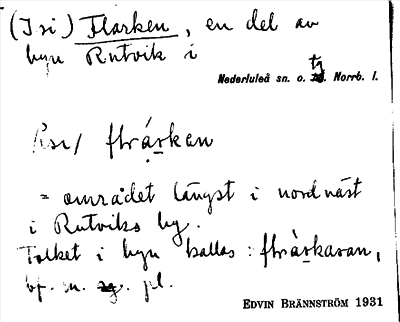 (I si) Flarken, en del av
byn Rutvik i
Nederluleå sn. o. tg. Norrb. l.
flṙárkan
= området längst i nordväst
i Rutviks by.
Folket i byn kallas: flárkaran,
bf. m. pl.
EDVIN BRÄNNSTRÖM 1931